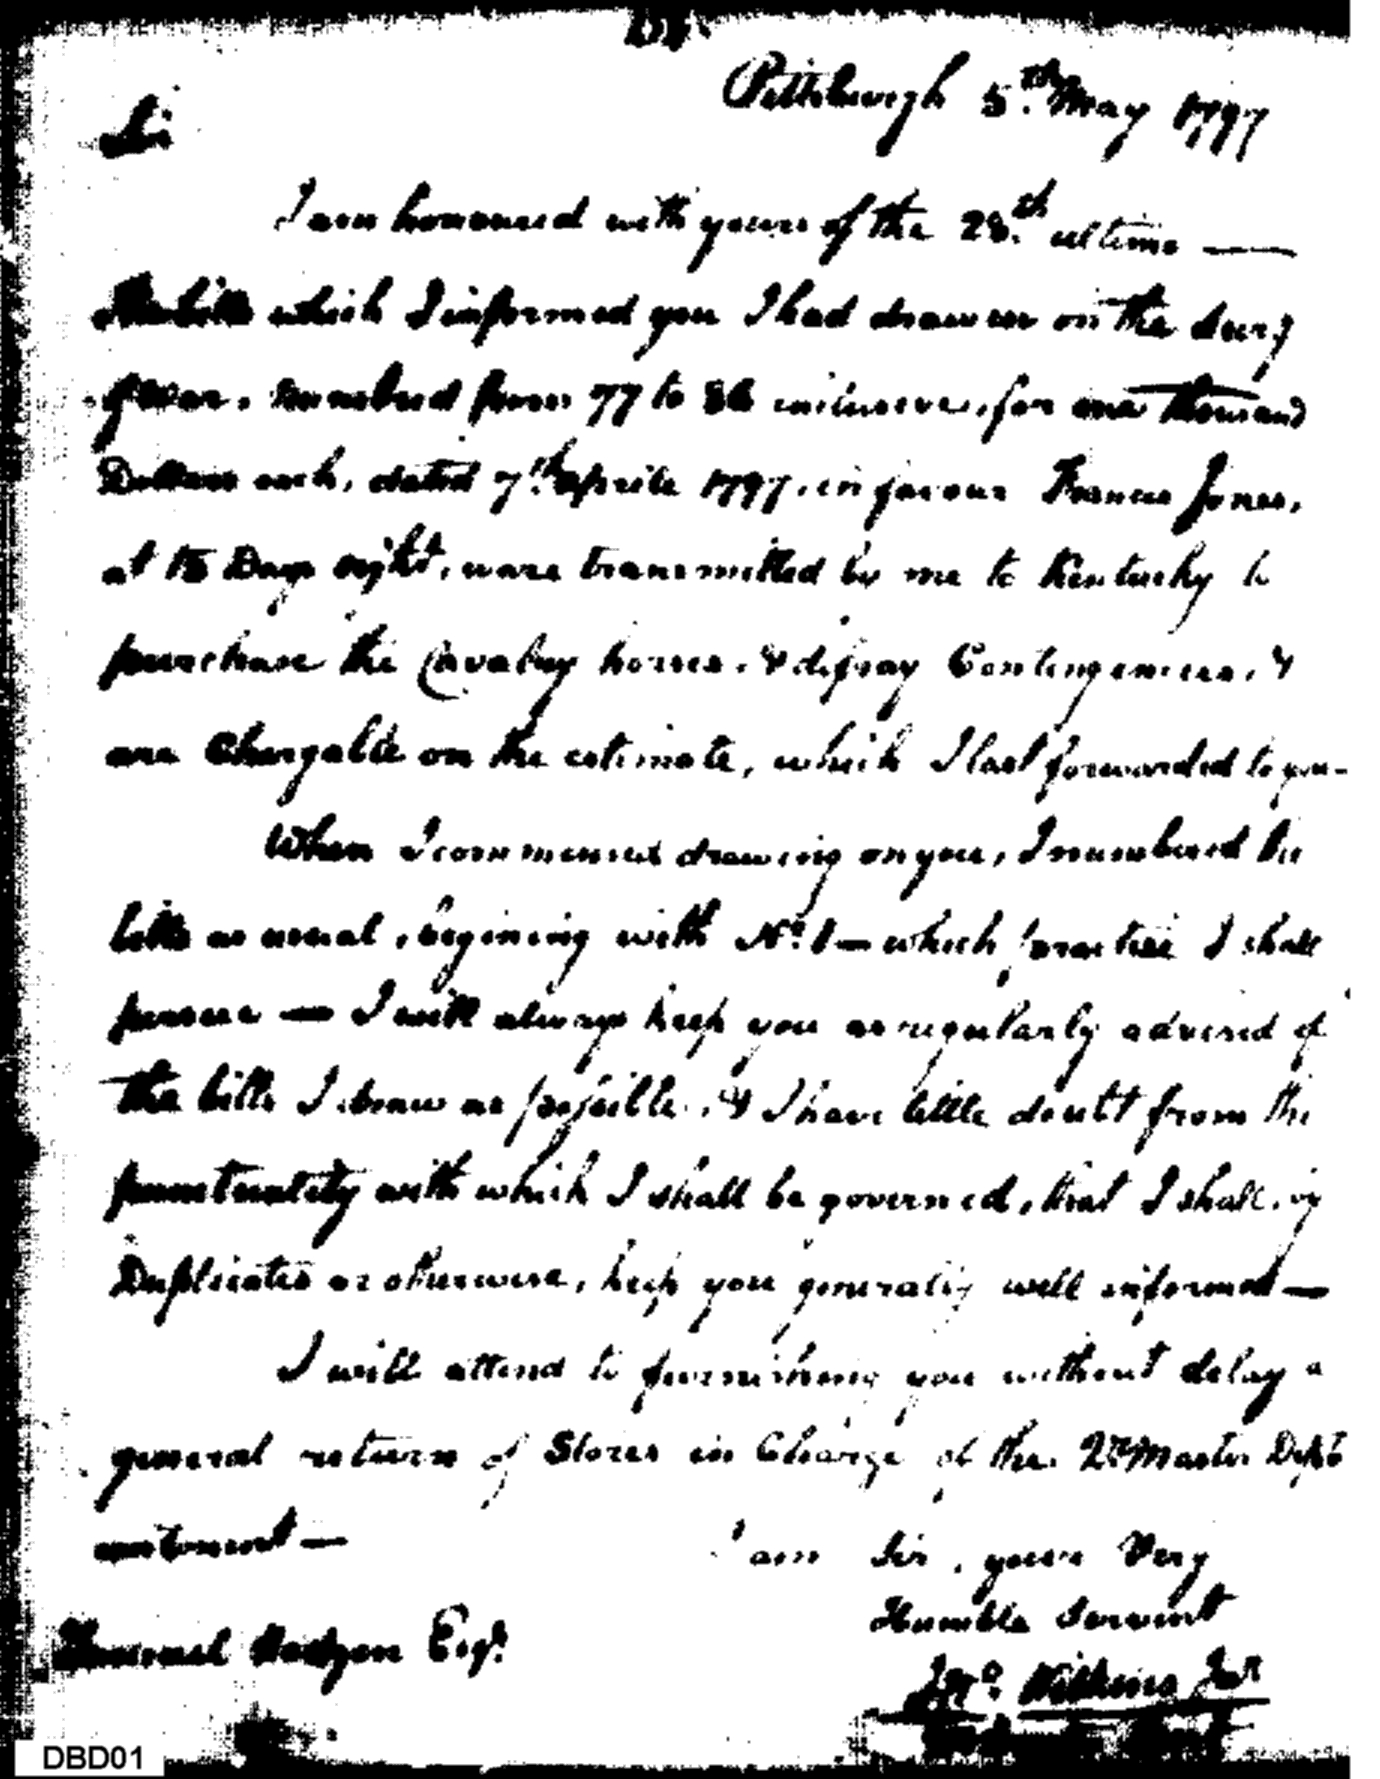 Pittsburgh 5th May 1797
Sir
I am honoured with yours of the 28th ultimo —
The bills which I informed you I had drawn on the Secy
of War, numbred from 77 to 86 inclusive, for one thousand
Dollars each, dated 7th Aprile 1797, in favour Francis Jones,
at 15 Days sight, ware transmitted by me to Kentucky to
purchase the Cavalry horses, & defray Contingencies, &
are Chargable on the estimate, which I last forwarded to you -
When I commenced drawing on you, I numbered the
bills as usual, begining with No. 1 — which practise I shall
pursue — I will always keep you as regularly advised of
the bills I draw as possible, & I have little doubt from the
punctuality with which I shall be governed, that I shall, by
Duplicates or otherwise, keep you generally well informed —
I will attend to furnishing you without delay a
general return of Stores in Charge of the Qr Master Dept
—
I am Sir, your Very
Humble Servant
Jno. Wilkins Jur
Samuel Hodgdon Esqr.
DBD01